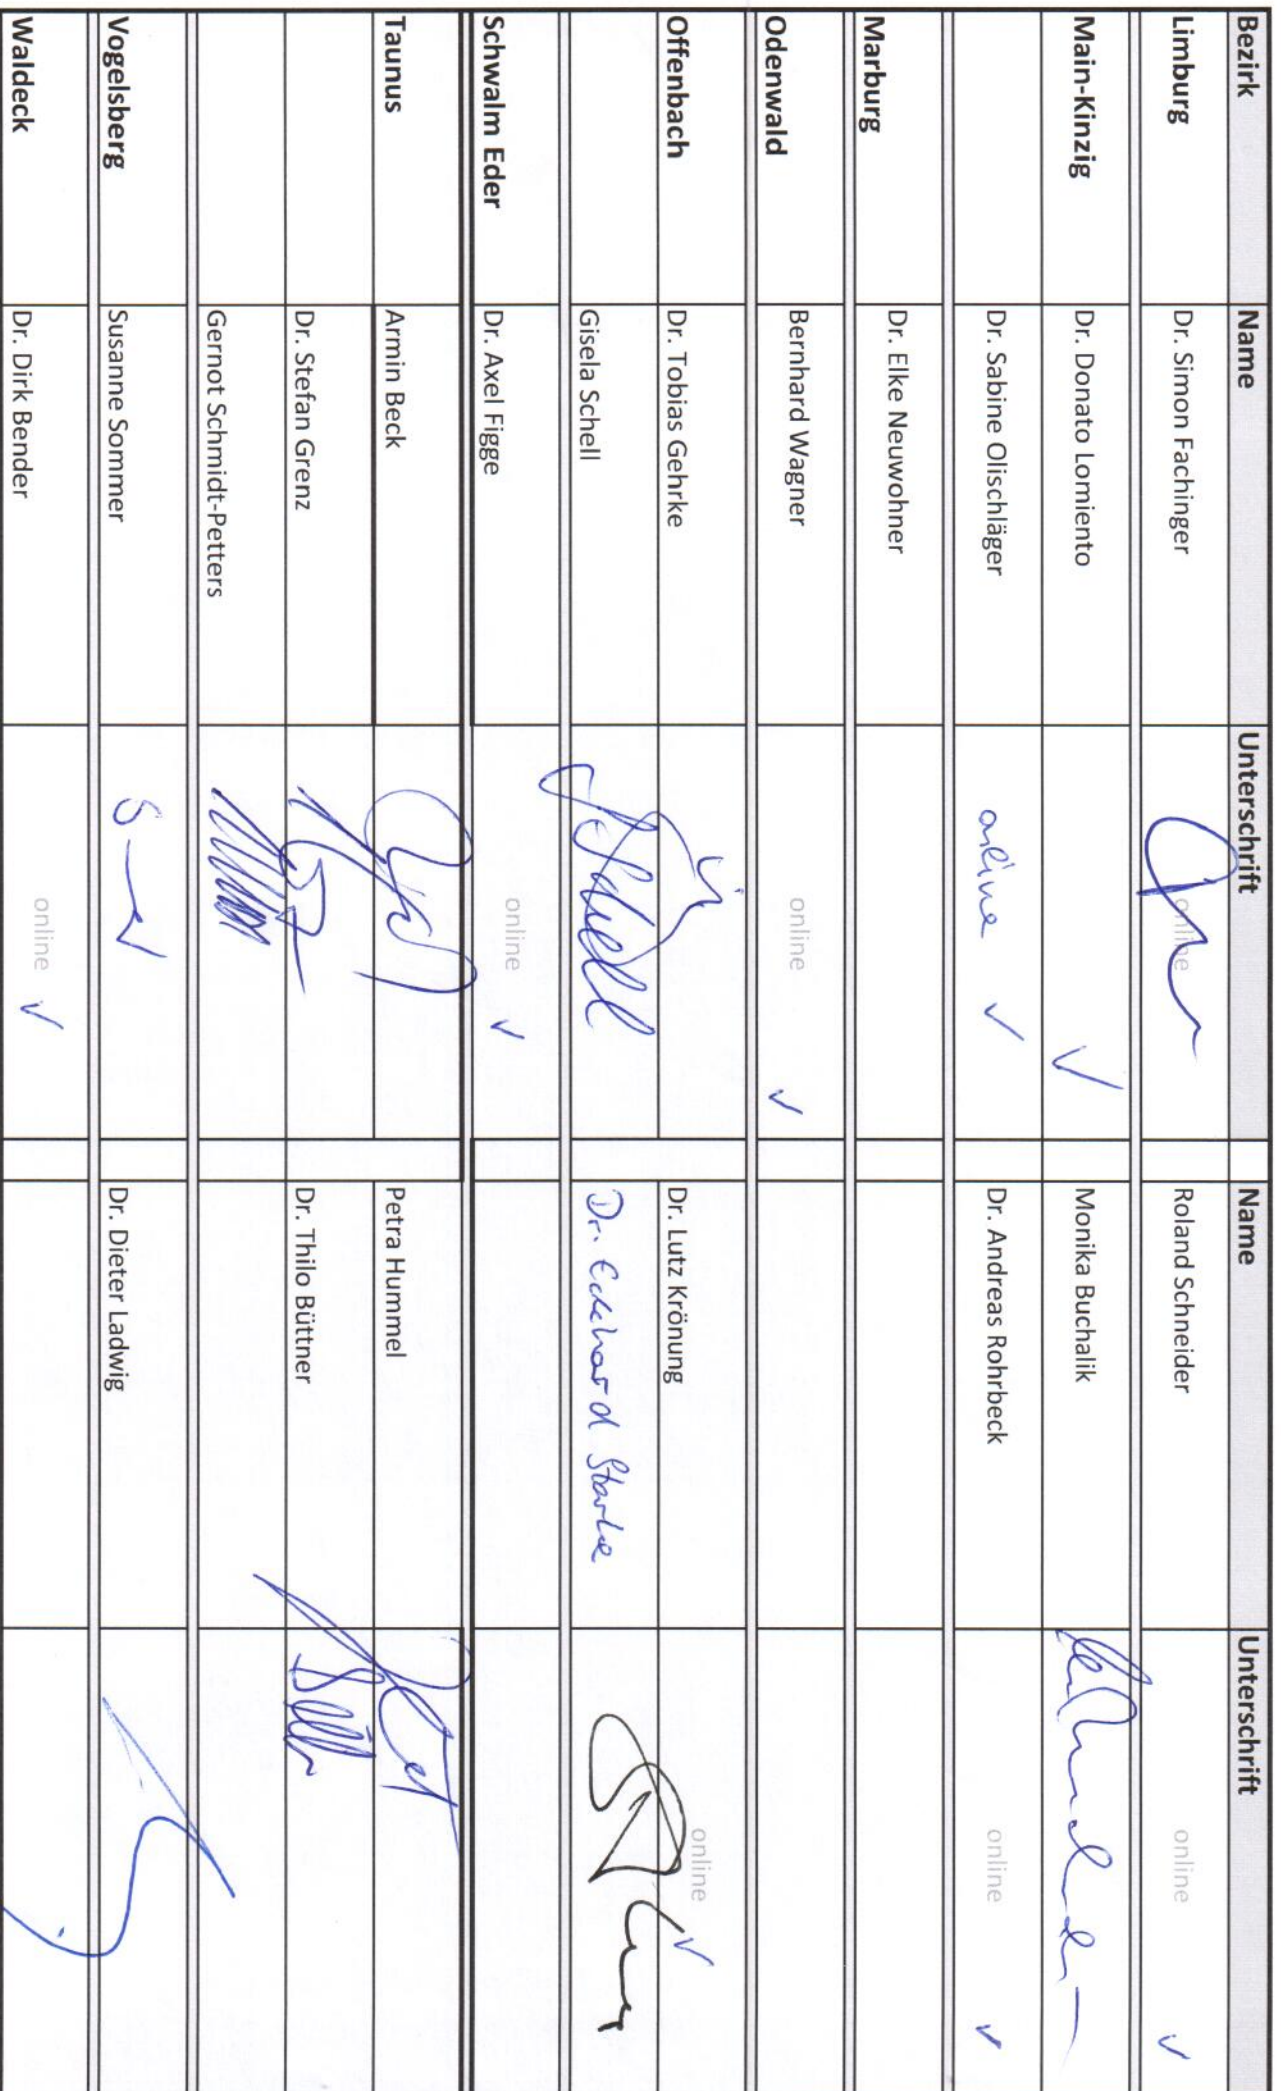 Bezirk Name Unterschrift Name Unterschrift
Limburg Dr. Simon Fachinger online Roland Schneider online ✓
Main-Kinzig Dr. Donato Lomiento ✓ Monika Buchalik
Dr. Sabine Olischläger online ✓ Dr. Andreas Rohrbeck online ✓
Marburg Dr. Elke Neuwohner
Odenwald Bernhard Wagner online ✓
Offenbach Dr. Tobias Gehrke Dr. Lutz Krönung online ✓
Gisela Schell Schell Dr. Eckhard Starke
Schwalm Eder Dr. Axel Figge online ✓
Taunus Armin Beck Petra Hummel
Dr. Stefan Grenz Dr. Thilo Büttner
Gernot Schmidt-Petters
Vogelsberg Susanne Sommer Dr. Dieter Ladwig
Waldeck Dr. Dirk Bender online ✓